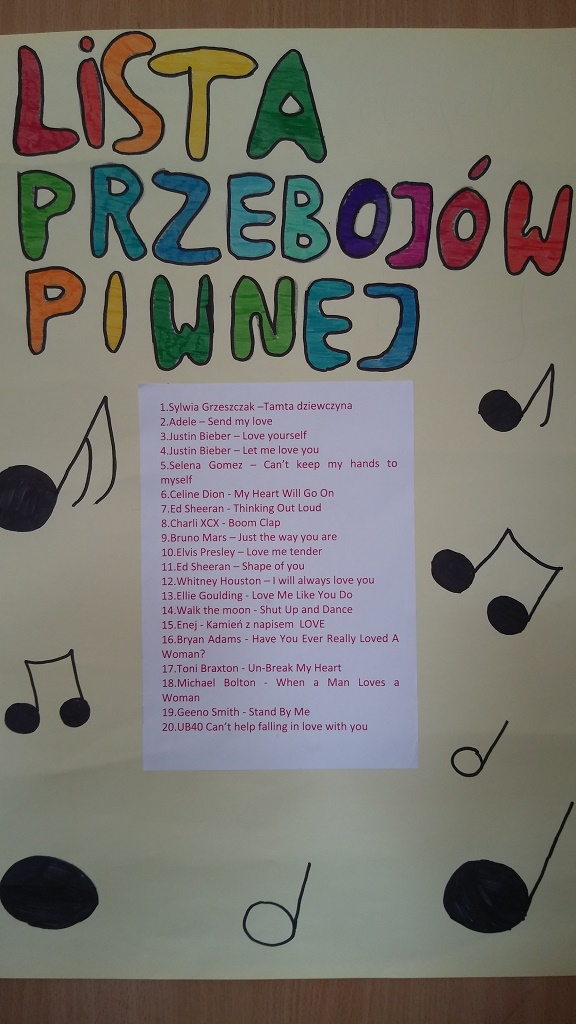 LiSTA
PRZEBOJÓW
PIWNEJ
1.Sylwia Grzeszczak –Tamta dziewczyna
2.Adele – Send my love
3.Justin Bieber – Love yourself
4.Justin Bieber – Let me love you
5.Selena Gomez – Can't keep my hands to
myself
6.Celine Dion - My Heart Will Go On
7.Ed Sheeran - Thinking Out Loud
8.Charli XCX - Boom Clap
9.Bruno Mars – Just the way you are
10.Elvis Presley – Love me tender
11.Ed Sheeran – Shape of you
12.Whitney Houston – I will always love you
13.Ellie Goulding - Love Me Like You Do
14.Walk the moon - Shut Up and Dance
15.Enej - Kamień z napisem LOVE
16.Bryan Adams - Have You Ever Really Loved A
Woman?
17.Toni Braxton - Un-Break My Heart
18.Michael Bolton - When a Man Loves a
Woman
19.Geeno Smith - Stand By Me
20.UB40 Can't help falling in love with you